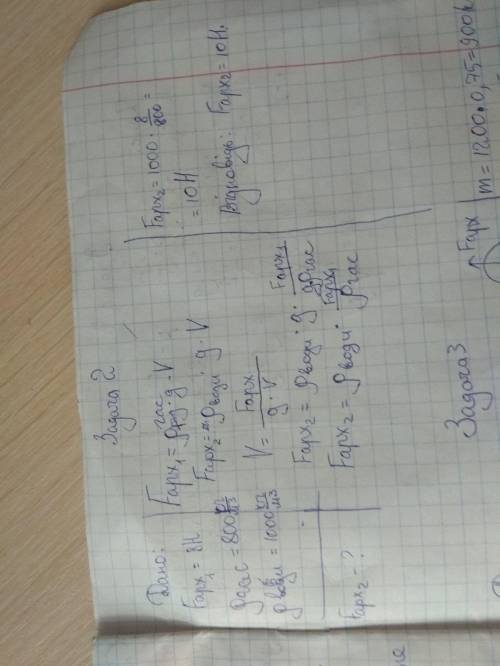 Задача 2
Дано:
Fарх₁ = 8Н
ρгас = 800 кг/м3
ρводи = 1000 кг/м3
Fарх₂ = ?
Fарх₁ = ρгас · g · V
Fарх₂ = ρводи · g · V
V = Fарх / g · V
Fарх₂ = ρводи · g · Fарх₁ / gρгас
Fарх₂ = ρводи · Fарх₁ / ρгас
Fарх₂ = 1000 · 8/800 =
= 10Н
Відповідь: Fарх₂ = 10Н.
Задача 3
Fарх
m = 1200 · 0,75 = 900к